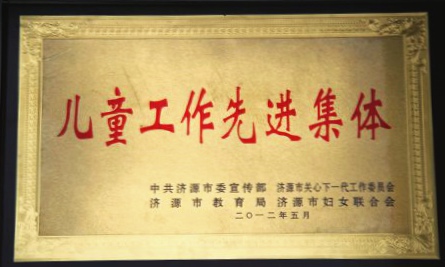 儿童工作先进集体
中共济源市委宣传部 济源市关心下一代工作委员会
济源市教育局 济源市妇女联合会
二〇一二年五月